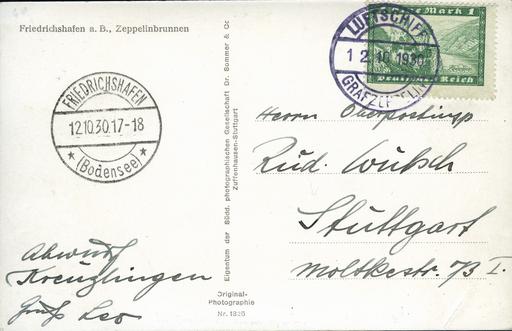 Friedrichshafen a. B., Zeppelinbrunnen
LUFTSCHIFF
12.10 1930
GRAF ZEPPELIN
Mark 1
Deutsches Reich
FRIEDRICHSHAFEN
12.10.30.17-18
(Bodensee)
Eigentum der Südd. photographischen Gesellschaft Dr. Sommer & Co
Zuffenhausen-Stuttgart
Herrn Oberpostinsp.
Rud. Wutsch
Stuttgart
Moltkestr. 73 I.
Abwurf
Kreuzlingen
Gruß Leo
Original-
Photographie
Nr. 1326